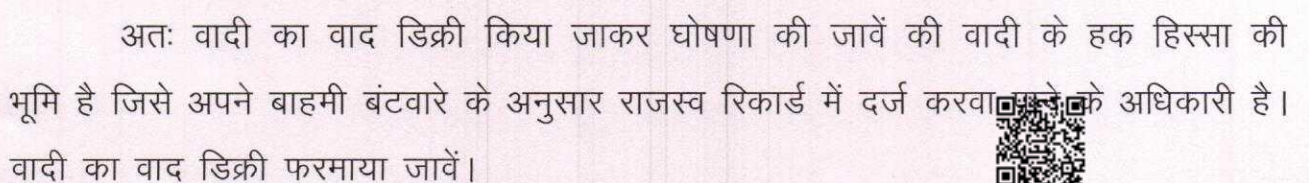 अतः वादी का वाद डिक्री किया जाकर घोषणा की जावें की वादी के हक हिस्सा की
भूमि है जिसे अपने बाहमी बंटवारे के अनुसार राजस्व रिकार्ड में दर्ज करवा के अधिकारी है।
वादी का वाद डिक्री फरमाया जावें।